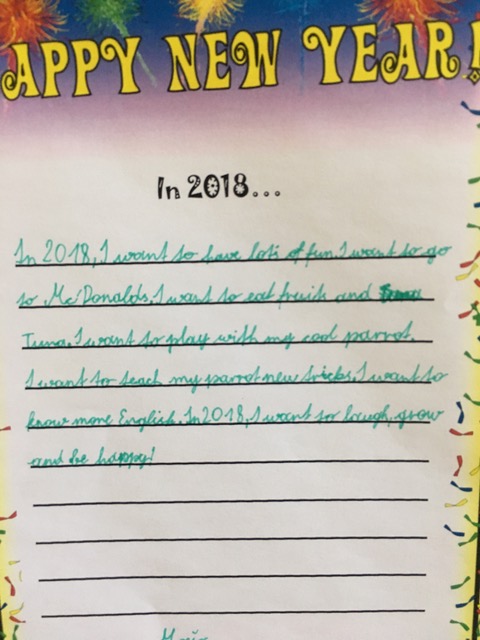 APPY NEW YEAR!
In 2018...
In 2018, I want to have lots of fun. I want to go
to Mc'Donalds. I want to eat fruit and
Tuna. I want to play with my cool parrot.
I want to teach my parrot new tricks. I want to
know more English. In 2018, I want to laugh, grow
and be happy!